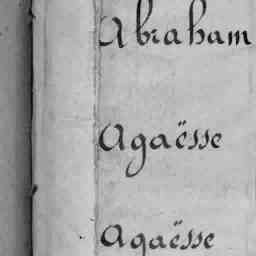 Abraham
Agaësse
Agaësse